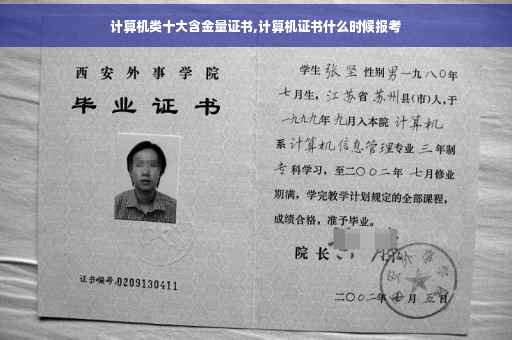 计算机类十大含金量证书,计算机证书什么时候报考
西安外事学院
毕业证书
证书编号:0209130411
学生 张坚 性别男 一九八〇年
七月生, 江苏省 苏州县(市)人,于
一九九九年 九月入本院 计算机
系 计算机信息管理专业 三 年制
专科学习, 至二〇〇二年 七月修业
期满, 学完教学计划规定的全部课程,
成绩合格, 准予毕业。
院长
二〇〇二年 七月 五日